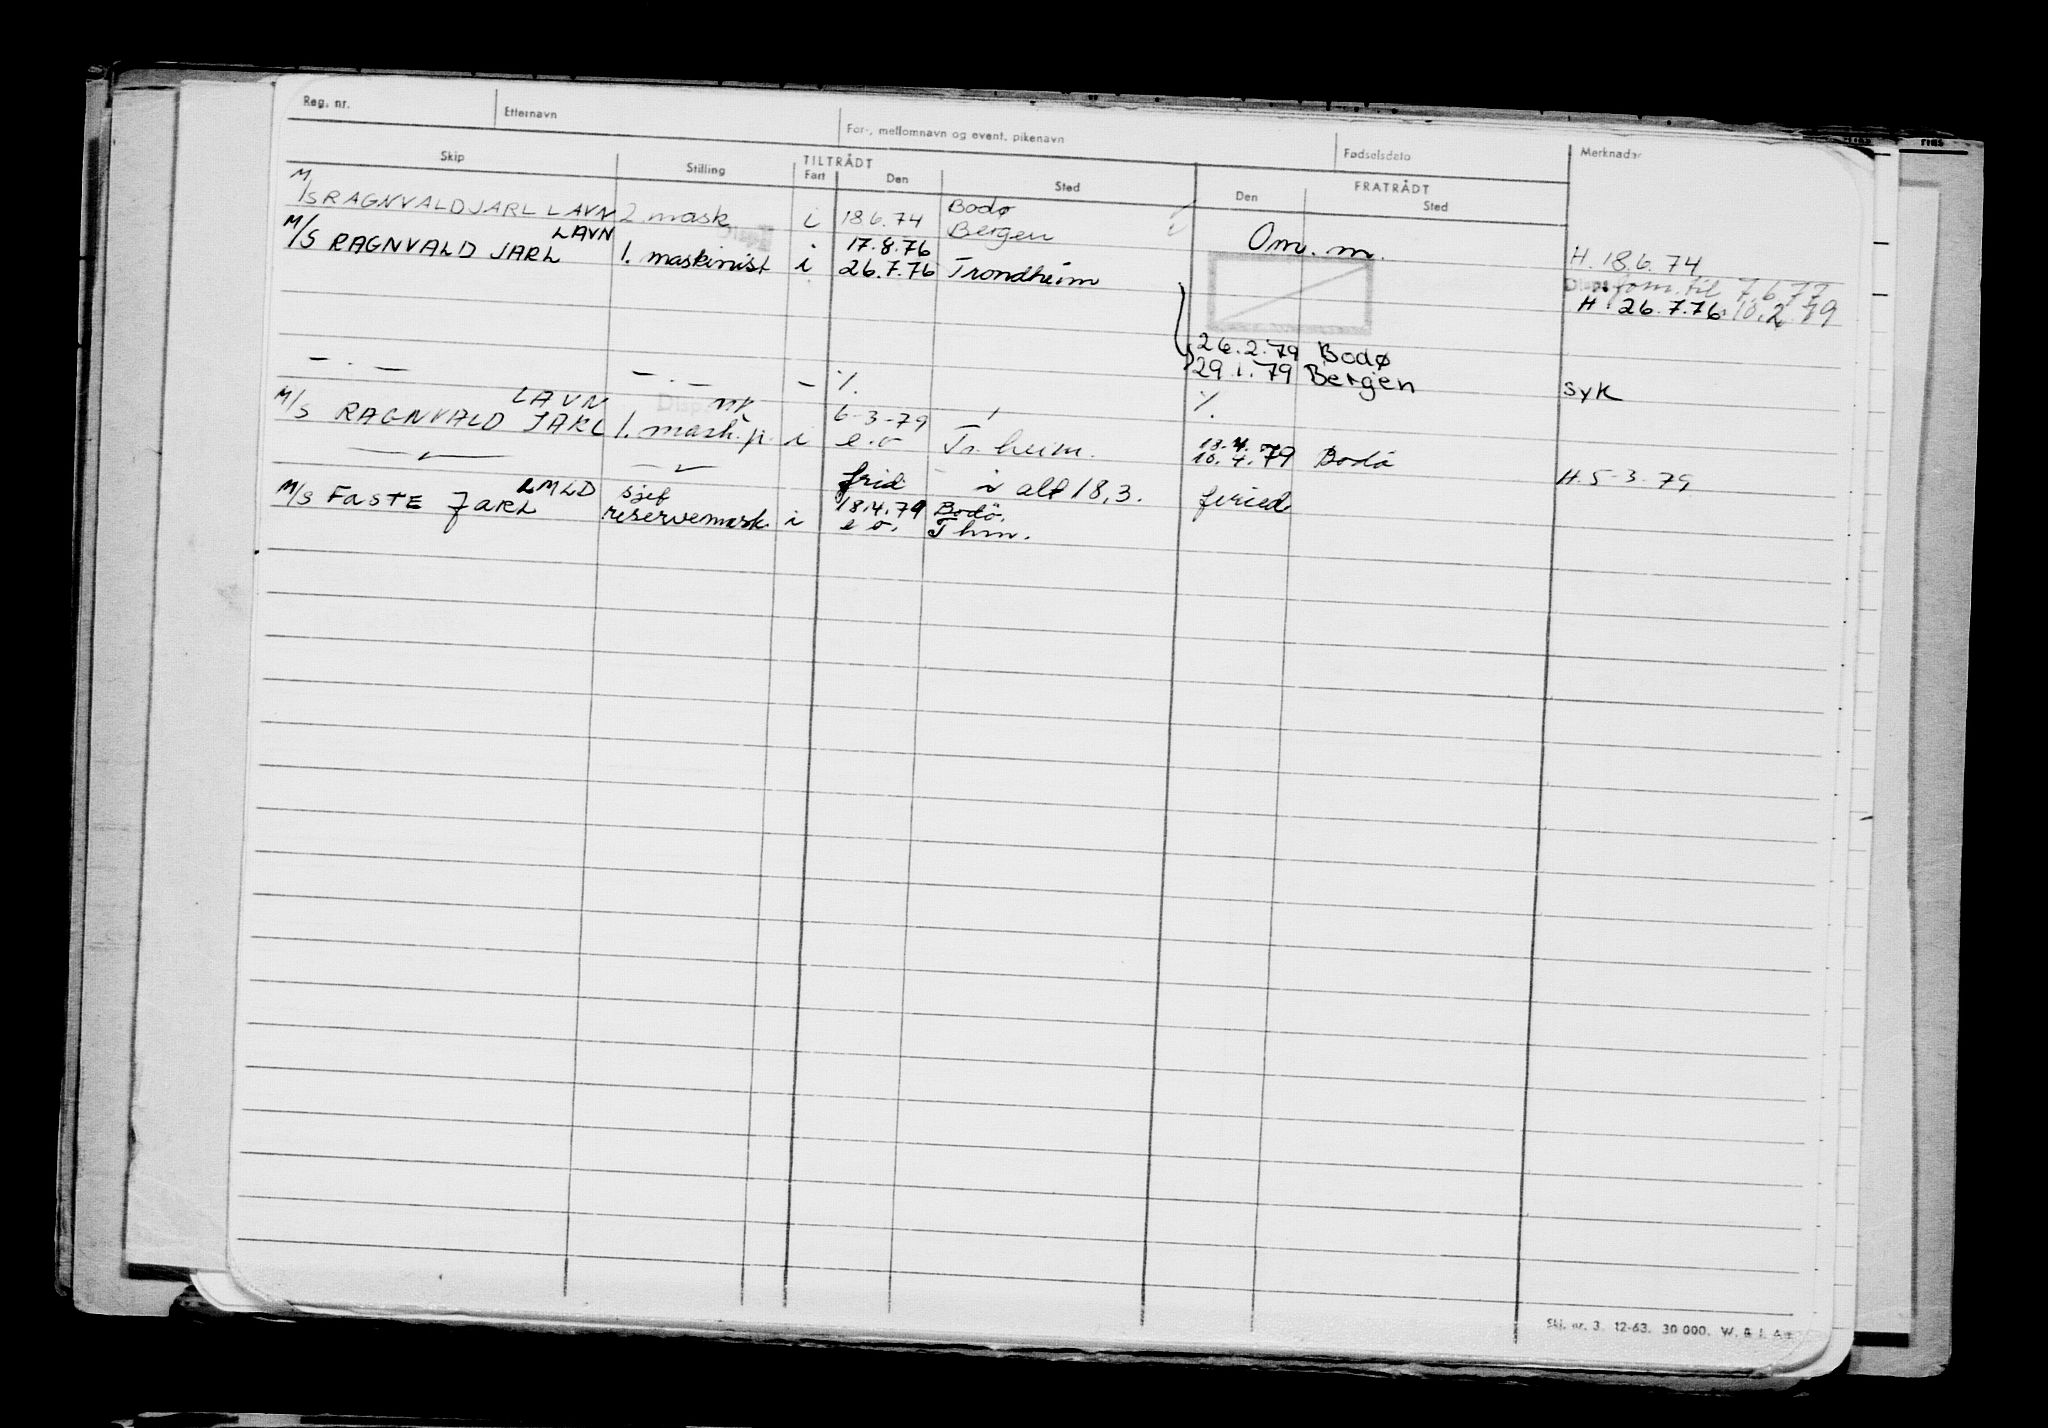 Reg. nr. Etternavn For-, mellomnavn og event. pikenavn Fødselsdato Merknader
Skip Stilling TILTRÅDT FRATRÅDT
Fart Den Sted Den Sted
M/S RAGNVALD JARL LAVN 2 mask i 18.6.74 Bodø Bergen Om. m. H. 18.6.74
M/S RAGNVALD JARL LAVN 1. maskinist i 17.8.76 26.7.76 Trondheim
fom. til 7.6.77
H 26.7.76. 10.2.79
26.2.79 Bodø
— . — — . — — ·/. 29.1.79 Bergen syk
M/S RAGNVALD JARL LAVN 1. mask. i 6-3-79 e.o Tr.heim. ·/.
18.4. 10.4.79 Bodö
frid i alt 18,3. feried H. 5-3.79
M/S FASTE JARL LMLD sjef reservemask. i 18.4.79 e o. Bodö. Thm.
Skj. nr. 3. 12-63. 30 000. W. & L A/s